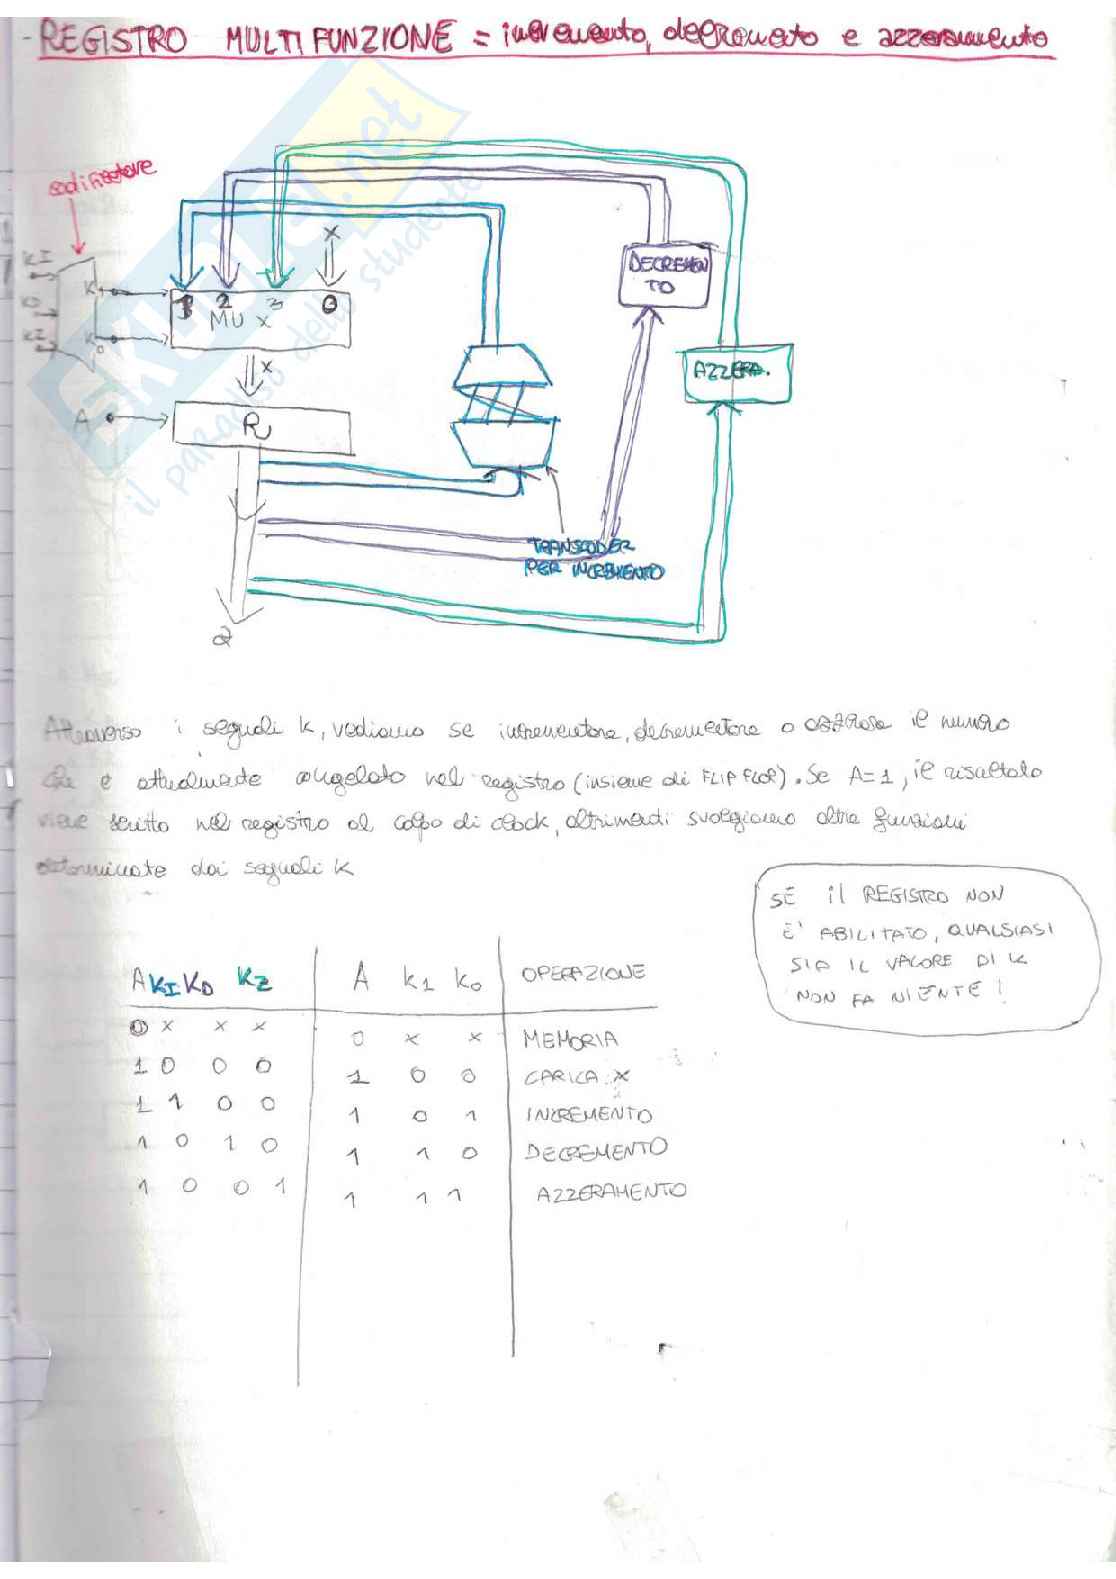 - REGISTRO MULTIFUNZIONE = incremento, decremento e azzeramento
codificatore
KI
KD
KZ
K1
K0
1 2 3 0
MUX
X
X
A
R
Q
DECREMEN
TO
AZZERA.
TRANSCODER
PER INCREMENTO
SKUOLA.net
il paradiso dello studente
Attraverso i segnali k, vediamo se incrementare, decrementare o azzerare il numero
che è attualmente congelato nel registro (insieme di FLIP FLOP). Se A=1, il risultato
viene scritto nel registro al colpo di clock, altrimenti svolgiamo altre funzioni
determinate dai segnali k
SE il REGISTRO NON
E' ABILITATO, QUALSIASI
SIA IL VALORE DI K
NON FA NIENTE!
A KI KD KZ A K1 K0 OPERAZIONE
0 x x x 0 x x MEMORIA
1 0 0 0 1 0 0 CARICA X
1 1 0 0 1 0 1 INCREMENTO
1 0 1 0 1 1 0 DECREMENTO
1 0 0 1 1 1 1 AZZERAMENTO